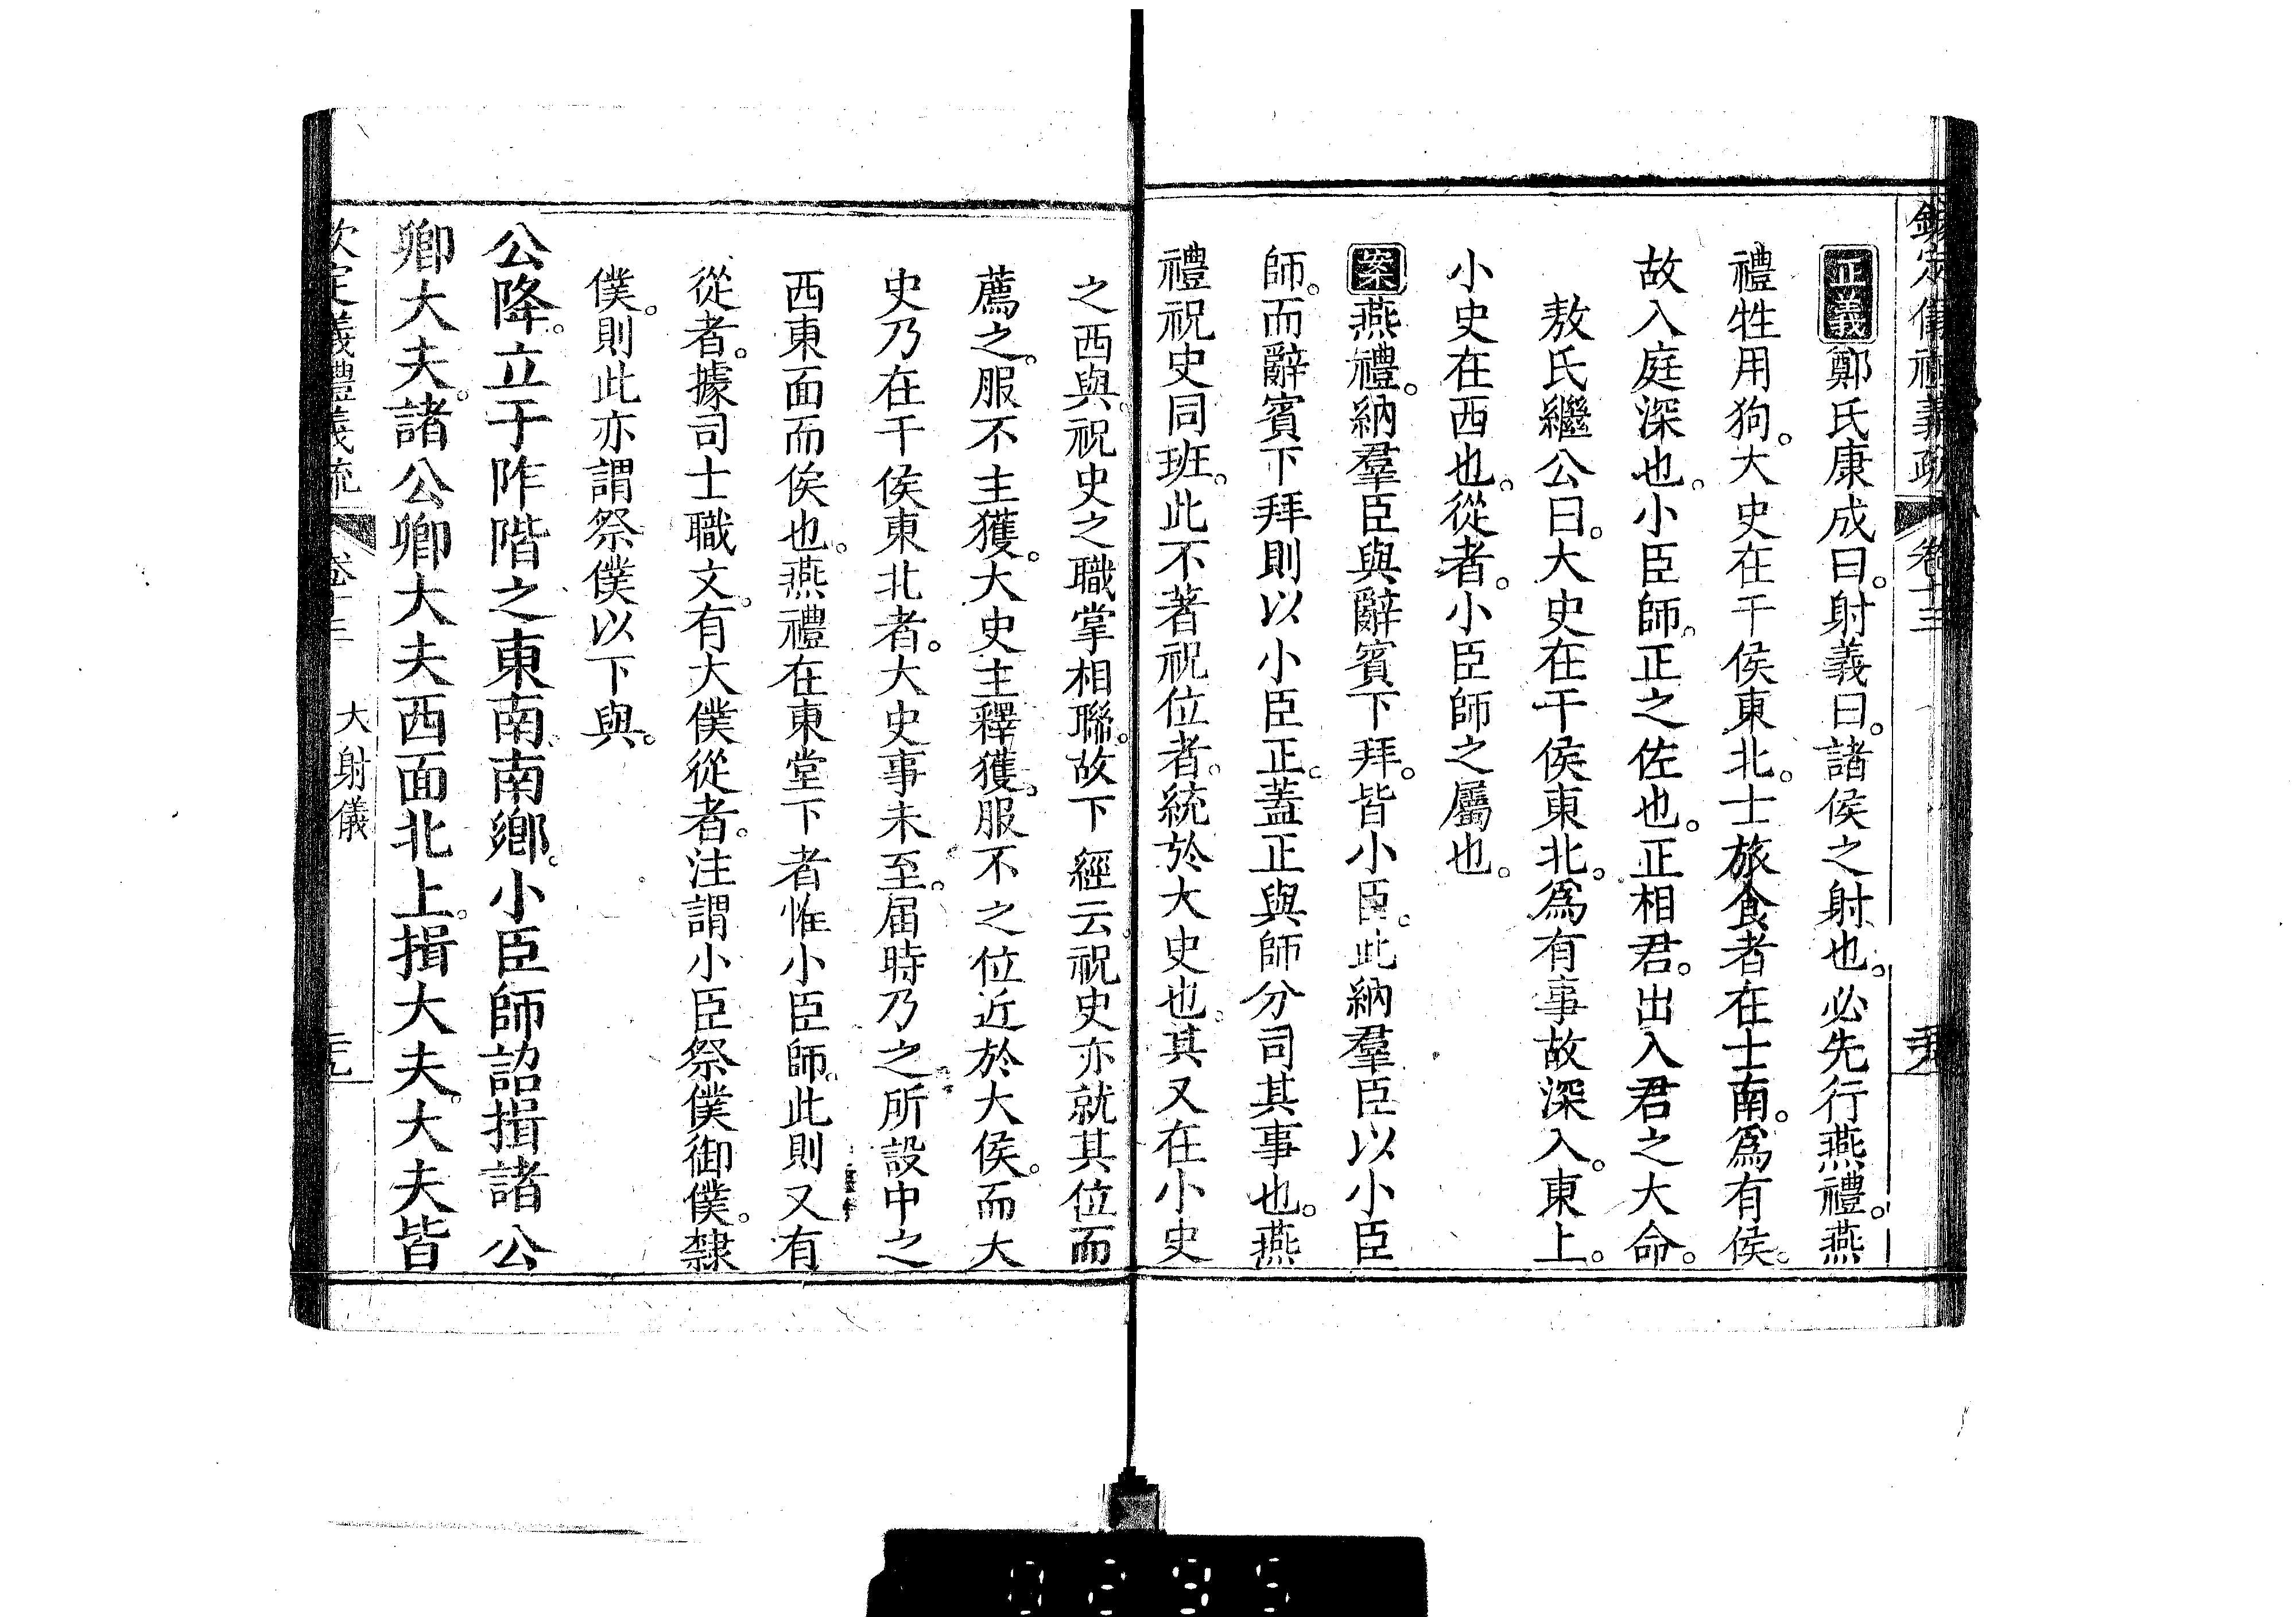 欽定儀禮義疏 卷十三
正義鄭氏康成曰。射義曰。諸侯之射也。必先行燕禮。燕
禮牲用狗。大史在干侯東北。士旅食者在士南。爲有侯。
故入庭深也。小臣師。正之佐也。正相君。出入君之大命。
敖氏繼公曰。大史在干侯東北。爲有事故深入。東上。
小史在西也。從者。小臣師之屬也。
案燕禮。納羣臣與辭賓下拜。皆小臣。此納羣臣以小臣
師。而辭賓下拜則以小臣正。蓋正與師分司其事也。燕
禮祝史同班。此不著祝位者。統於大史也。其又在小史
之西與。祝史之職掌相聯。故下經云祝史亦就其位而
薦之。服不主獲。大史主釋獲。服不之位近於大侯。而大
史乃在干侯東北者。大史事未至。届時乃之所設中之
西東面而俟也。燕禮在東堂下者惟小臣師。此則又有
從者。據司士職文。有大僕從者。注謂小臣祭僕御僕。隸
僕。則此亦謂祭僕以下與。
公降。立于阼階之東南。南鄉。小臣師詔揖諸公
卿大夫。諸公卿大夫西面北上。揖大夫。大夫皆
欽定儀禮義疏 卷十三 大射儀
0295